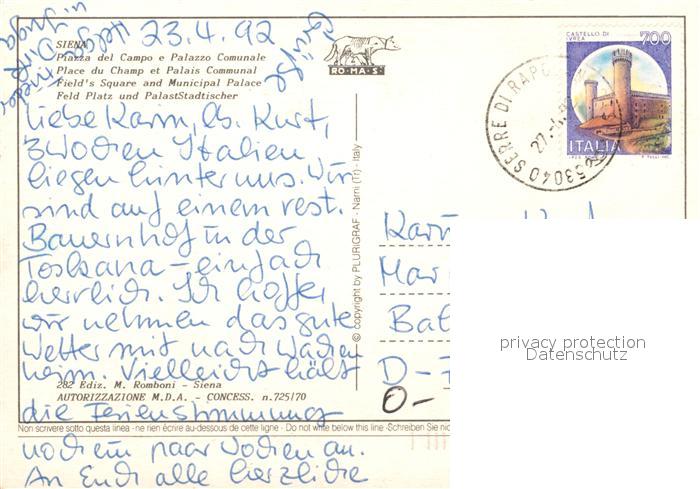 23.4.92
SIENA
Piazza del Campo e Palazzo Comunale
Place du Champ et Palais Communal
Field's Square and Municipal Palace
Feld Platz und PalastStadtischer
RO·MA·S·
CASTELLO DI
IVREA
700
ITALIA
53040 SERRE DI RAPO
Liebe Karin, lb. Kurt,
3 Wochen Italien
liegen hinter uns. Wir
sind auf einem rest.
Bauernhof in der
Toskana - einfach
herrlich. Ich hoffe,
wir nehmen das gute
Wetter mit nach Wadern
heim. Vielleicht hält
282 Ediz. M. Romboni - Siena
AUTORIZZAZIONE M.D.A. - CONCESS. n.725/70
die Ferienstimmung
Non scrivere sotto questa linea - ne rien écrire au-dessous de cette ligne - Do not write below this line - Schreiben Sie
noch ein paar Wochen an.
An Euch alle herzliche
Grüße
© copyright by PLURIGRAF - Narni (Tr) - Italy
Karin
Mar
Bal
D-
O-
privacy protection
Datenschutz